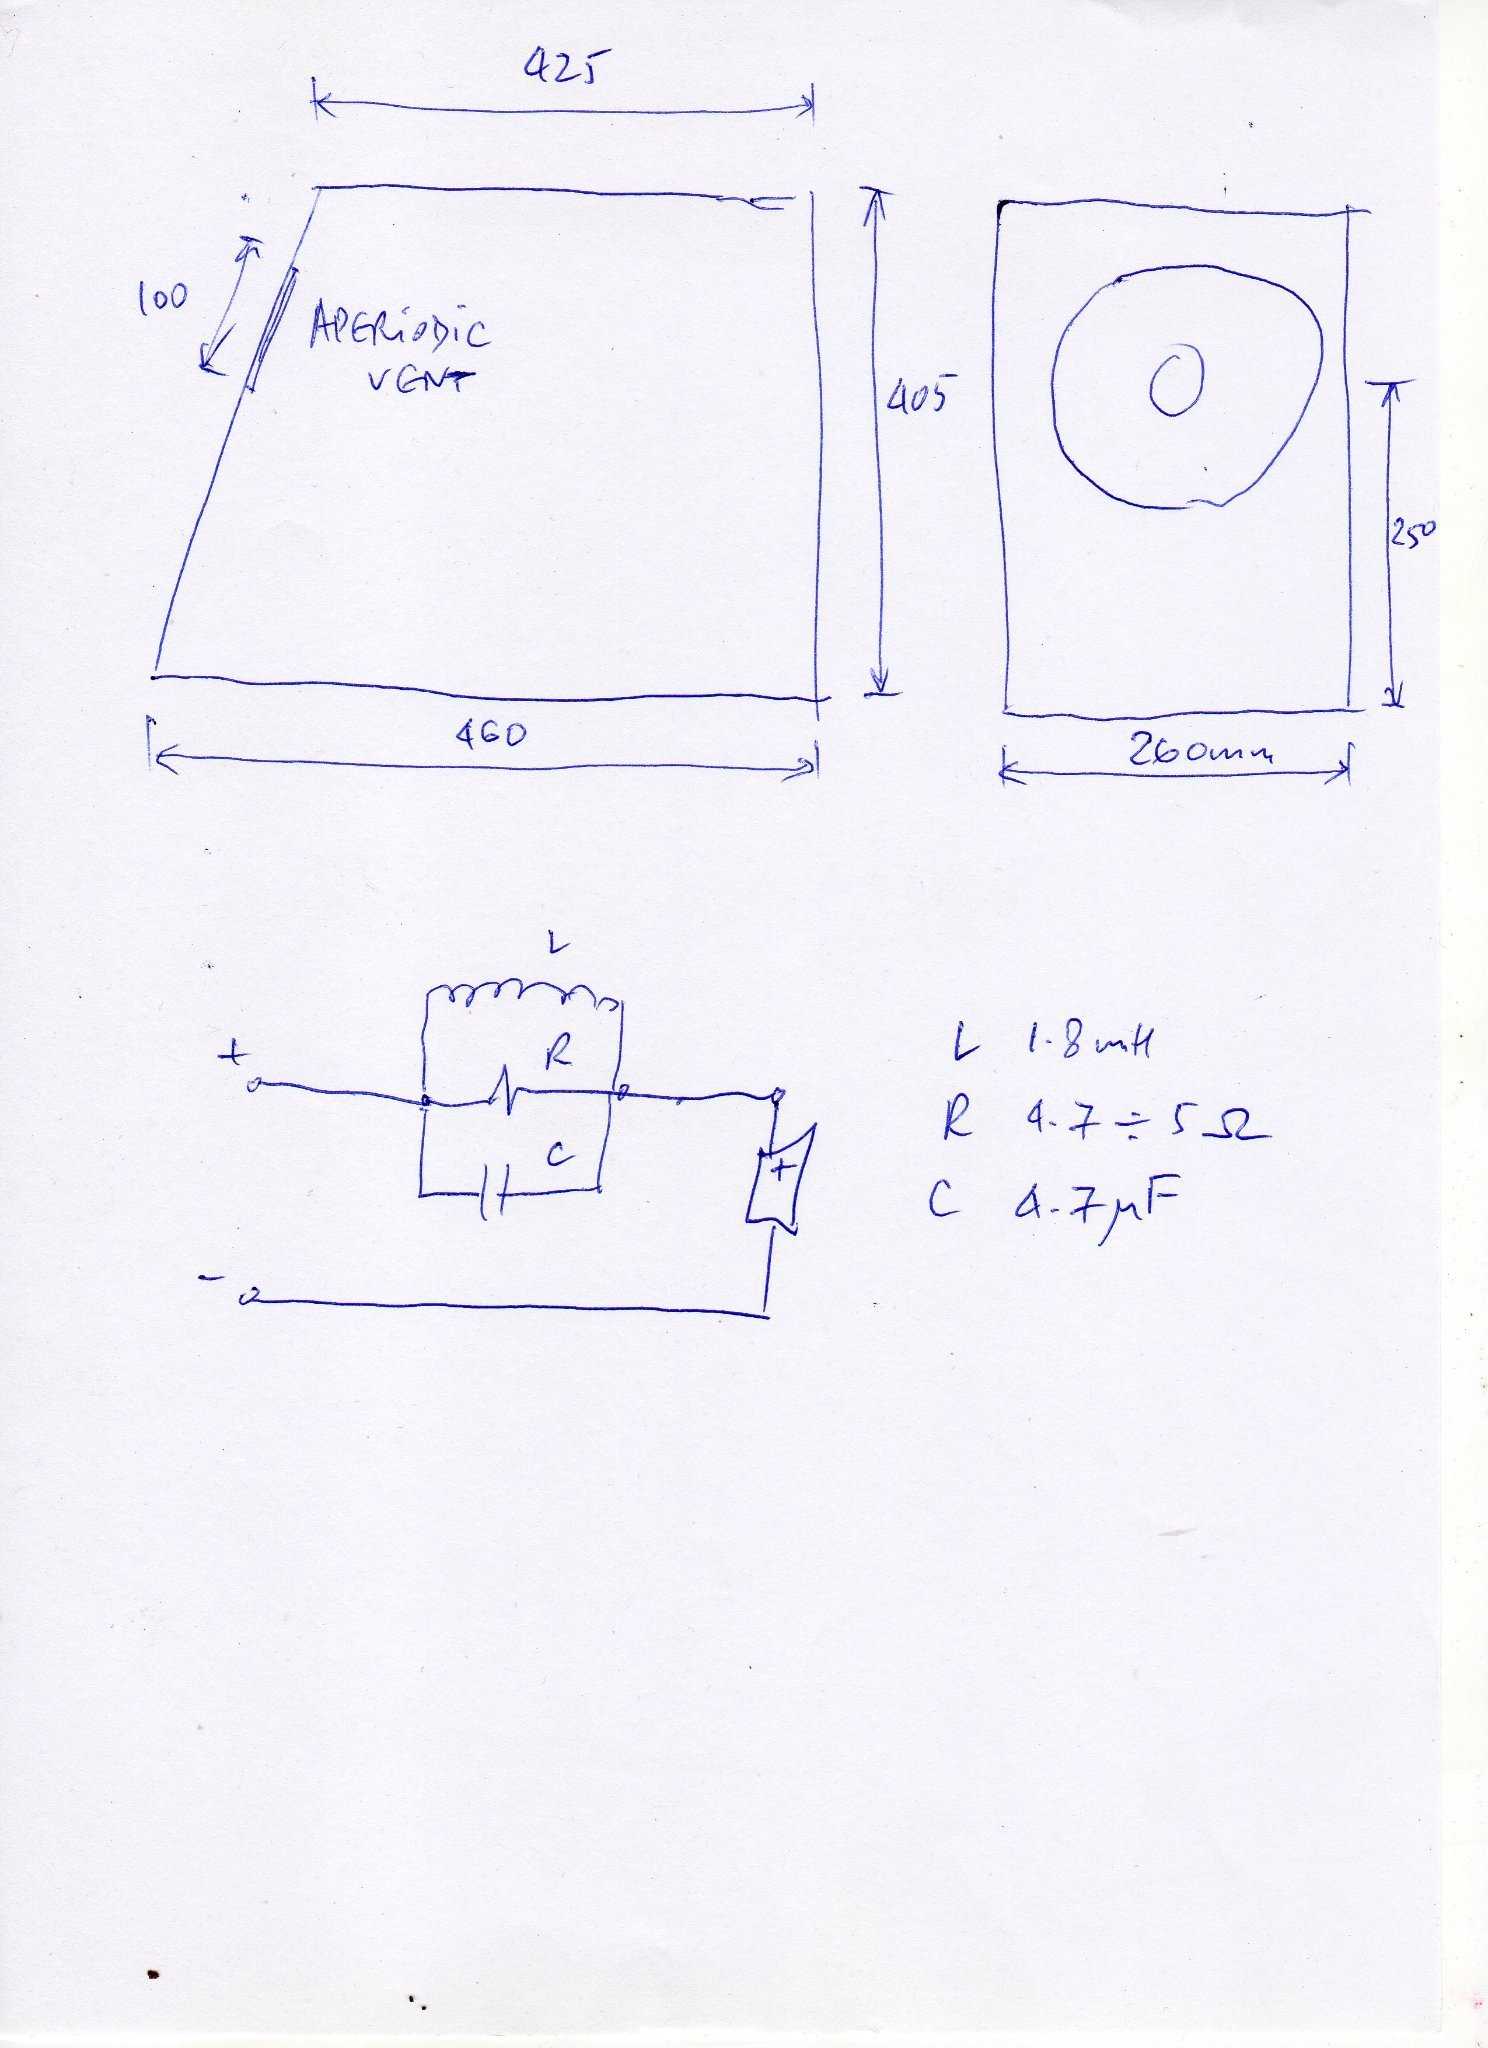 425
100
APERiODiC
VENT
405
250
460
260mm
L
+
R
C
+
-
L 1.8mH
R 4.7 ÷ 5 Ω
C 4.7 μF